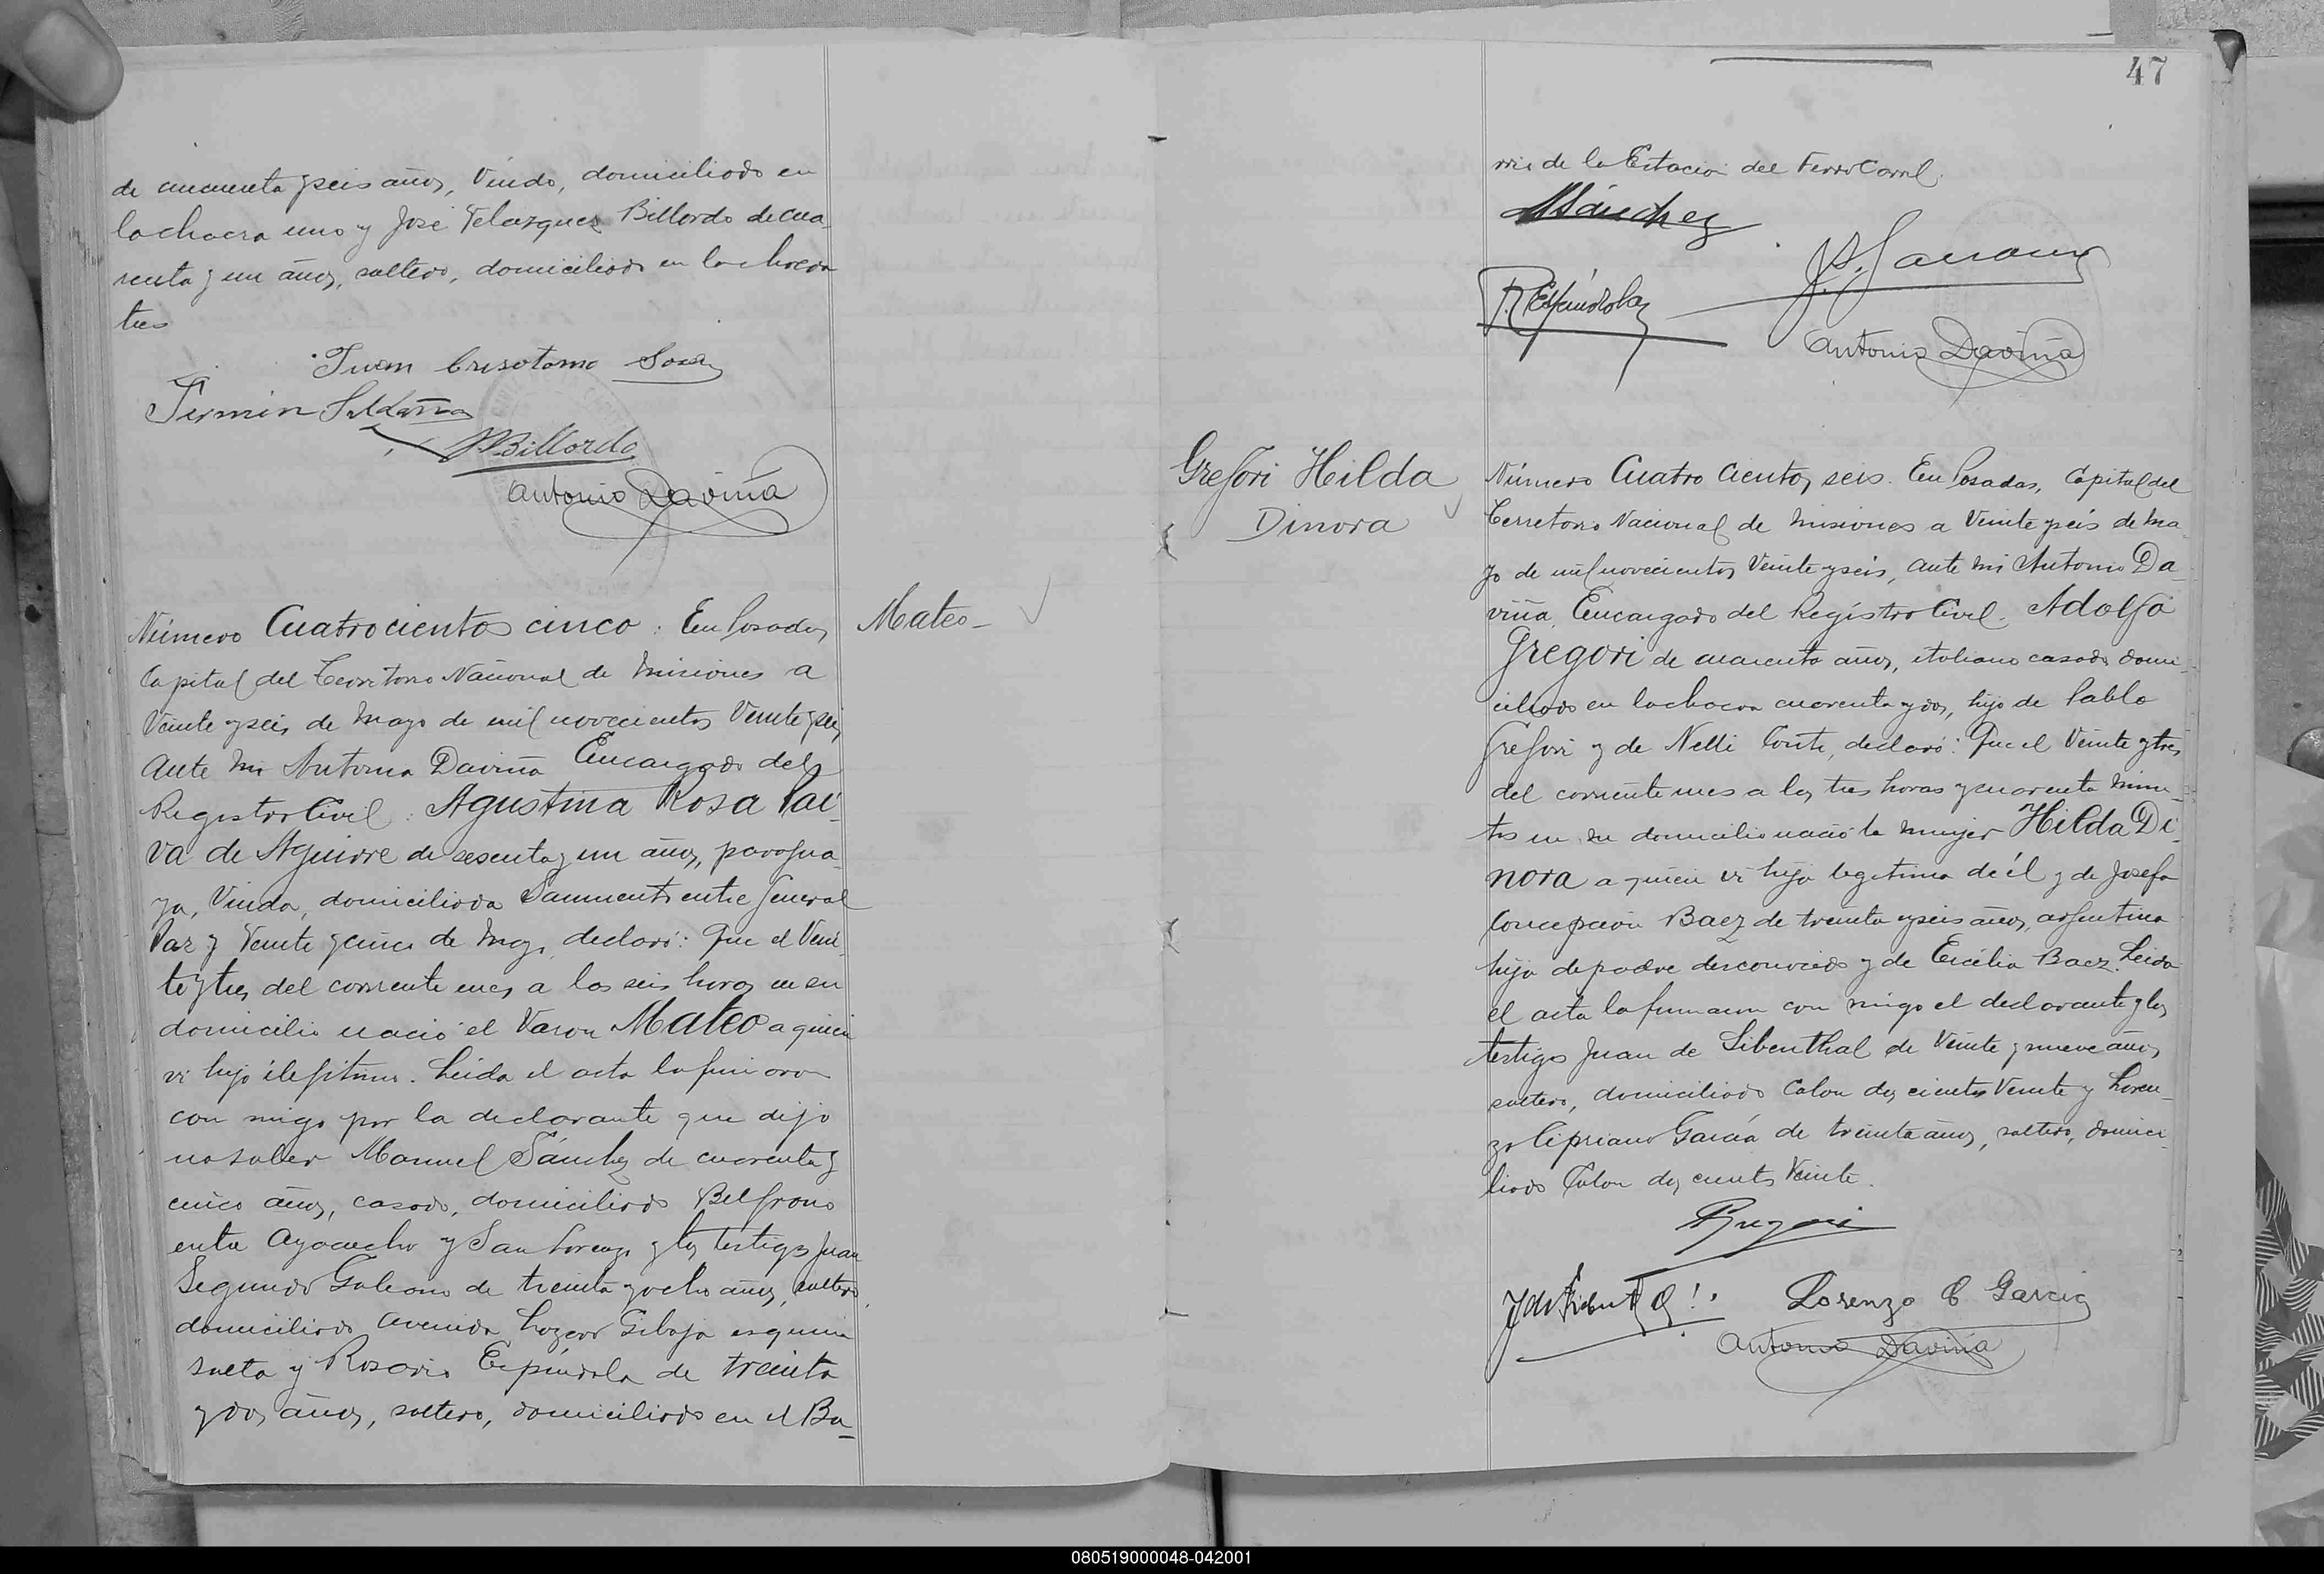 de cincuenta y seis años, Viudo, domiciliado en
la chacra uno y José Velazquez Billordo de cua
renta y un años, soltero, domiciliado en la chacra
tres
Juan Crisotomo Sosa
Fermin Saldaña
Billordo
Antonio Daviña
Número Cuatrocientos cinco: En Posadas,
Capital del Territorio Nacional de Misiones a
Veinte y seis de Mayo de mil novecientos Veinte y seis,
Ante Mi Antonio Daviña Encargado del
Registro Civil: Agustina Rosa Pai
va de Aguirre de sesenta y un años, paragua
ya, Viuda, domiciliada Sarmiento entre General
Paz y Veinte y cinco de Mayo, declaró: Que el Vein
te y tres del corriente mes a las seis horas en su
domicilio nació el Varon Mateo a quien
vi hijo ilegitimo. Leida el acta la firmaron
con migo por la declarante que dijo
no saber Manuel Sánchez de cuarenta y
cinco años, casado, domiciliado Belgrano
entre Ayacucho y San Lorenzo y los testigos Juan
Segundo Galeano de treinta y ocho años, soltero,
domiciliado Avenida Gibaja esquina
Salta y Rosario Espíndola de treinta
y dos años, soltero, domiciliado en el Ba_
Mateo_
47
rrio de la Estacion del Ferro Carril.
MSánchez
R. Espíndola
Antonio Daviña
Gregori Hilda
Dinora
Número Cuatro cientos seis. En Posadas, Capital del
Territorio Nacional de Misiones a Veinte y seis de Ma
yo de mil novecientos Veinte y seis, ante Mi Antonio Da
viña, Encargado del Registro Civil. Adolfo
Gregori de cuarenta años, italiano casado domi_
ciliado en la chacra cuarenta y dos, hijo de Pablo
Gregori y de Nelli Conte, declaró: Que el Veinte y tres
del corriente mes a las tres horas y cuarenta minu_
tos en su domicilio nació la mujer Hilda Di_
nora a quien vi hija legitima de él y de Josefa
Concepción Baez de treinta y seis años, argentina
hija de padre desconocido y de Cecilia Baez. Leida
el acta la firmaron con migo el declarante y los
testigos Juan de Libenthal de Veinte y nueve años
soltero, domiciliado Colon dos cientos Veinte y Loren_
zo Cipriano García de treinta años, soltero, domici_
liado Colon dos cientos Veinte.
Gregori
Lorenzo C Garcia
Antonio Daviña
080519000048-042001